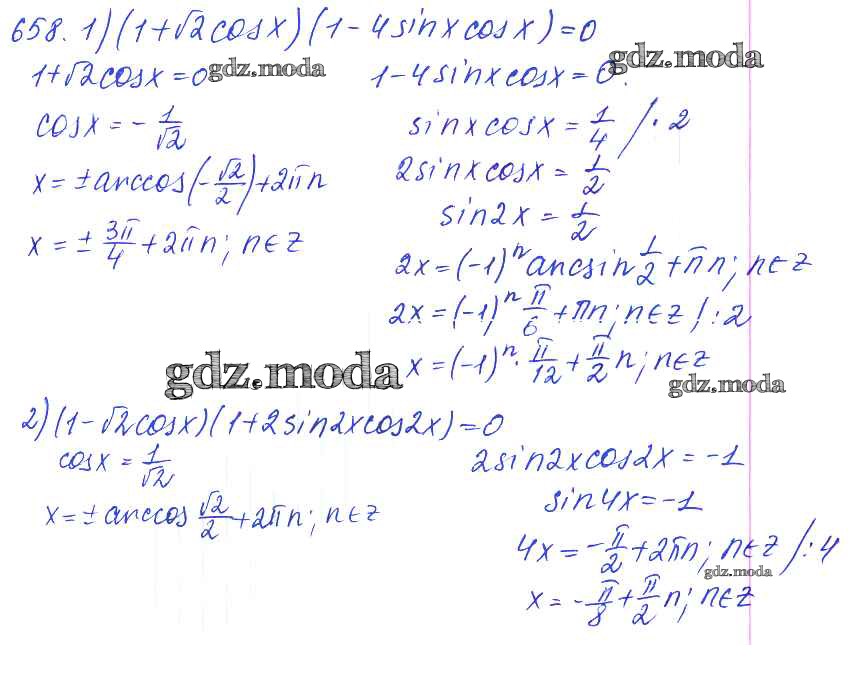 658. 1) (1+√2cosx)(1-4sinxcosx)=0
1+√2cosx=0 gdz.moda
1-4sinxcosx=0. gdz.moda
cosx=-1/√2
x=±arccos(-√2/2)+2πn
x=±3π/4+2πn; n∈Z
sinxcosx=1/4 /·2
2sinxcosx=1/2
sin2x=1/2
2x=(-1)ⁿarcsin1/2+πn; n∈Z
2x=(-1)ⁿπ/6+πn; n∈Z /:2
x=(-1)ⁿ·π/12+π/2n; n∈Z
gdz.moda
gdz.moda
2) (1-√2cosx)(1+2sin2xcos2x)=0
cosx=1/√2
x=±arccos√2/2+2πn; n∈Z
2sin2xcos2x=-1
sin4x=-1
4x=-π/2+2πn; n∈Z /:4
gdz.moda
x=-π/8+π/2n; n∈Z